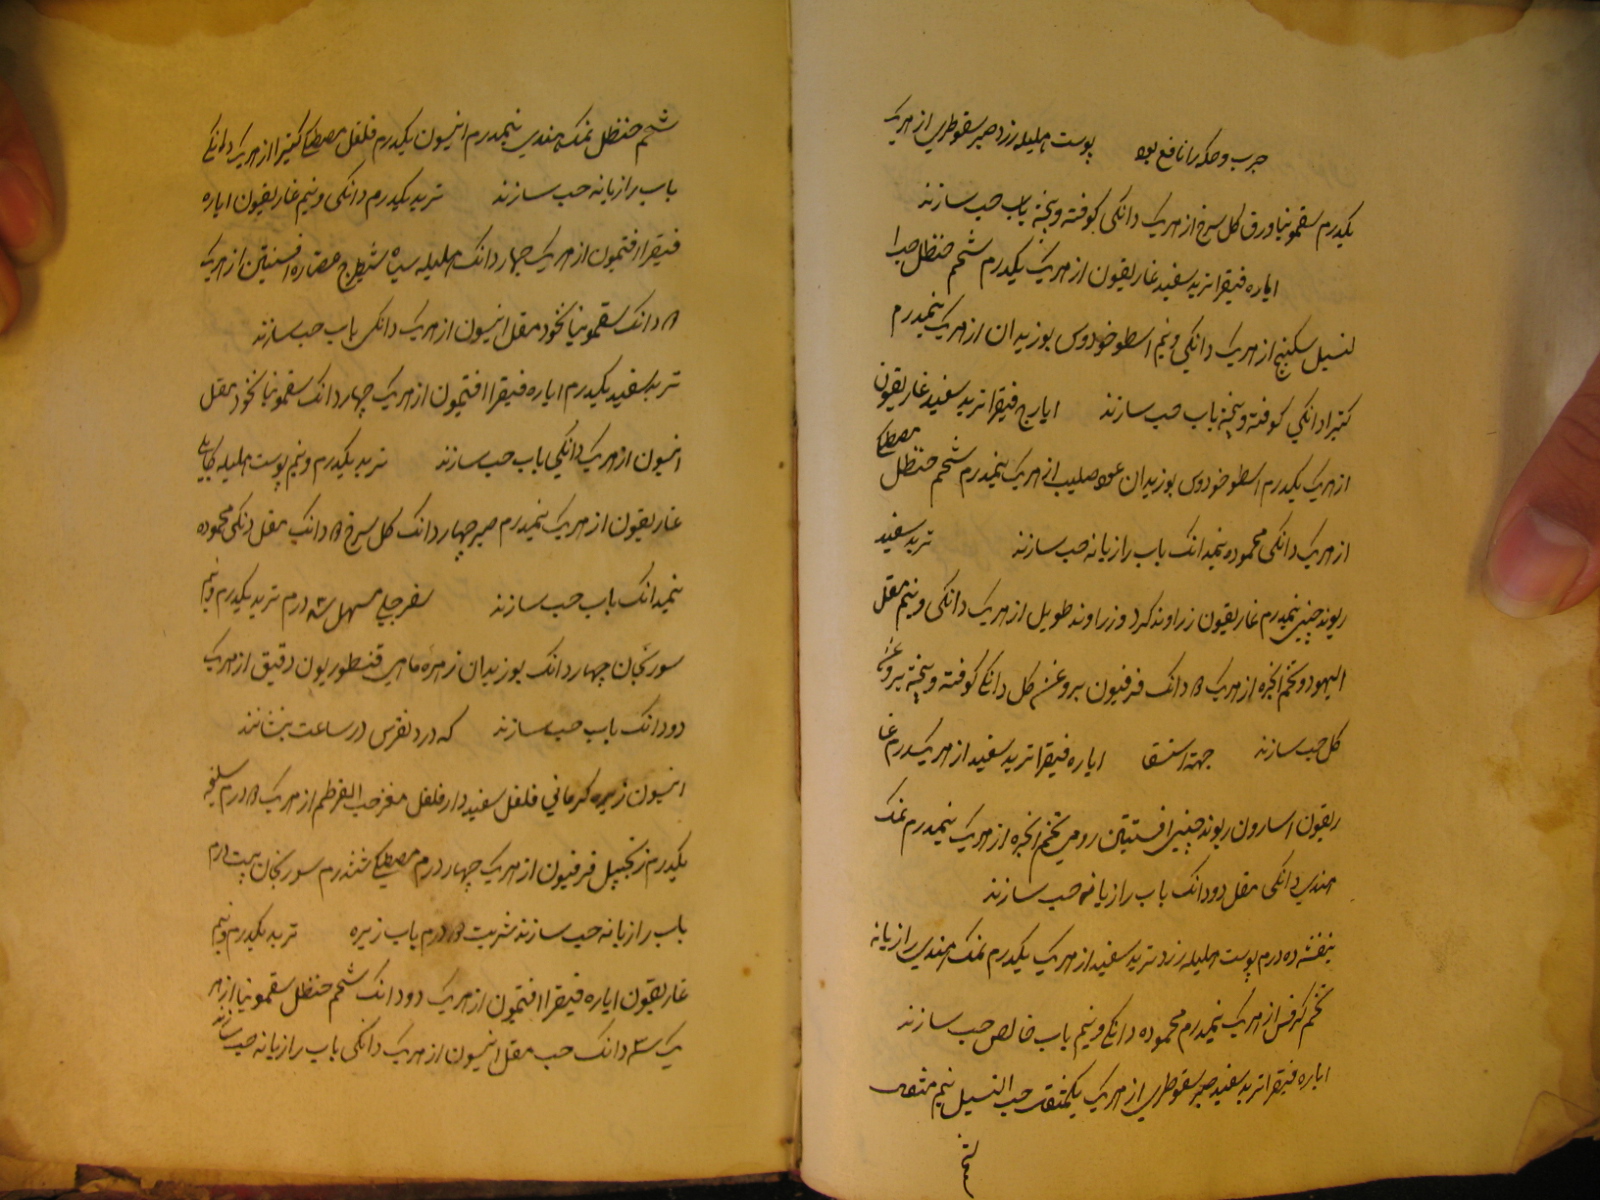 جرب و حکه را نافع بود پوست هلیله زرد صبر سقوطری از هریک
یکدرم سقمونیا ورق کل سرخ از هریک دانکی کوفته و بیخته باب حب سازند
ایاره فیقرا تربد سفید غاریقون از هریک یکدرم شحم حنظل حب ا
لنیل سکبینج از هریک دانکی و نیم اسطوخودوس بوزیدان از هریک نیمدرم
کتیرا دانکی کوفته و بیخته باب حب سازند ایارج فیقرا تربد سفید غاریقون
از هریک یکدرم اسطوخودوس بوزیدان عود صلیب از هریک نیمدرم شحم حنظل مصطکی
از هریک دانکی محموده نیمدانک باب رازیانه حب سازند تربد سفید
ریوند چینی نیمدرم غاریقون زراوند کرد و زراوند طویل از هریک دانکی و نیم مقل
الیهود و تخم انجره از هریک دانک فرفیون بروغن کل دانکی کوفته و بیخته بروغن
کل حب سازند جهة استسقا ایاره فیقرا تربد سفید از هریک یکدرم غا
ریقون اسارون ریوند چینی افسنتین رومی تخم انجره از هریک نیمدرم نمک
هندی دانکی مقل دو دانک باب رازیانه حب سازند
بنفشه ده درم پوست هلیله زرد تربد سفید از هریک یکدرم نمک هندی رازیانه
تخم کرفس از هریک نیمدرم محموده دانکی و نیم باب خالص حب سازند
ایاره فیقرا تربد سفید صبر سقوطری از هریک یکمثقال حب النیل نیم مثقال
شحم حنظل نمک هندی نیمدرم انیسون یکدرم فلفل مصطکی کتیرا از هریک دانکی
باب رازیانه حب سازند تربد یکدرم دانکی و نیم غاریقون ایاره
فیقرا افتیمون از هریک چهار دانک هلیله سیاه شیطرج عصاره افسنتین از هریک
دانک سقمونیا نخود مقل انیسون از هریک دانکی باب حب سازند
تربد سفید یکدرم ایاره فیقرا افتیمون از هریک چهار دانک سقمونیا نخود مقل
انیسون از هریک دانکی باب حب سازند تربد یکدرم و نیم پوست هلیله کابلی
غاریقون از هریک نیمدرم صبر چهار دانک کل سرخ دانک مقل دنکی محموده
نیمدانک باب حب سازند سفرجلی مسهل سه درم تربد یکدرم و نیم
سورنجان چهار دانک بوزیدان زهره ماهی قنطوریون دقیق از هریک
دو دانک باب حب سازند که درد نقرس در ساعت بنشانند
انیسون زیره کرمانی فلفل سفید دارفلفل مغز حب القرطم از هریک درم سلیخه
یکدرم زنجبیل فرفیون از هریک چهار درم مصطکی ششدرم سورنجان بیست درم
باب رازیانه حب سازند شربت درم باب زیره تربد یکدرم و نیم
غاریقون ایاره فیقرا افتیمون از هریک دو دانک شحم حنظل سقمونیا از هر
یک دانک حب مقل انیسون از هریک دانکی باب رازیانه حب سازند